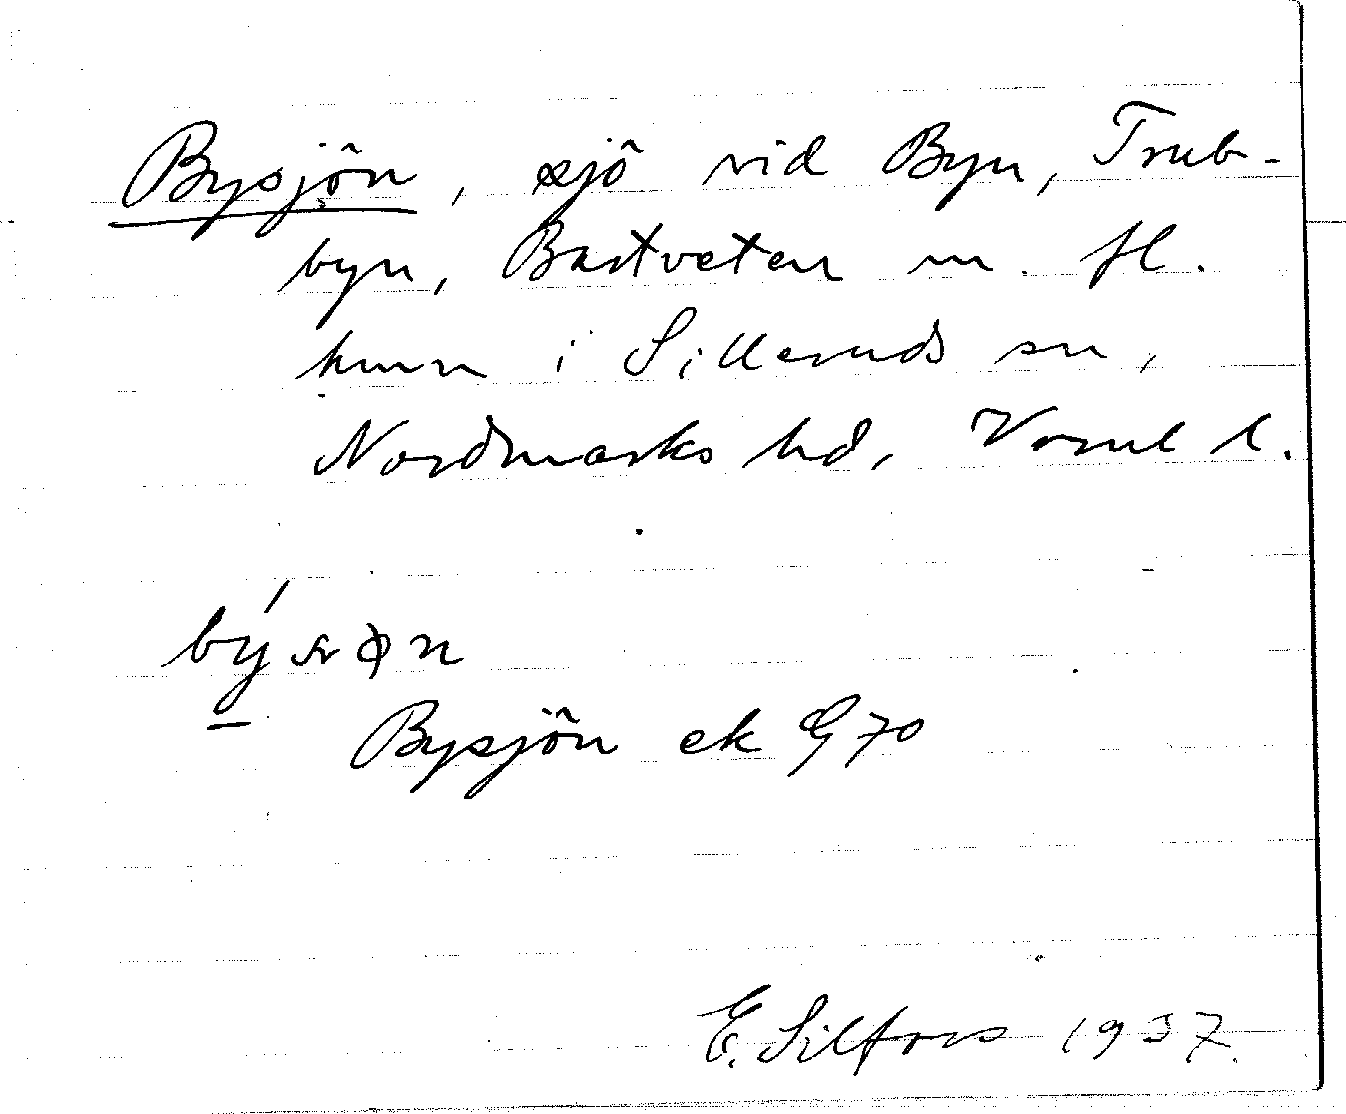 Bysjön, sjö vid Byn, Trub-
byn, Bastveten m. fl.
hmn i Silleruds sn,
Nordmarks hd, Værml l.
bý
Bysjön ek G 70
E. Silfors 1937.